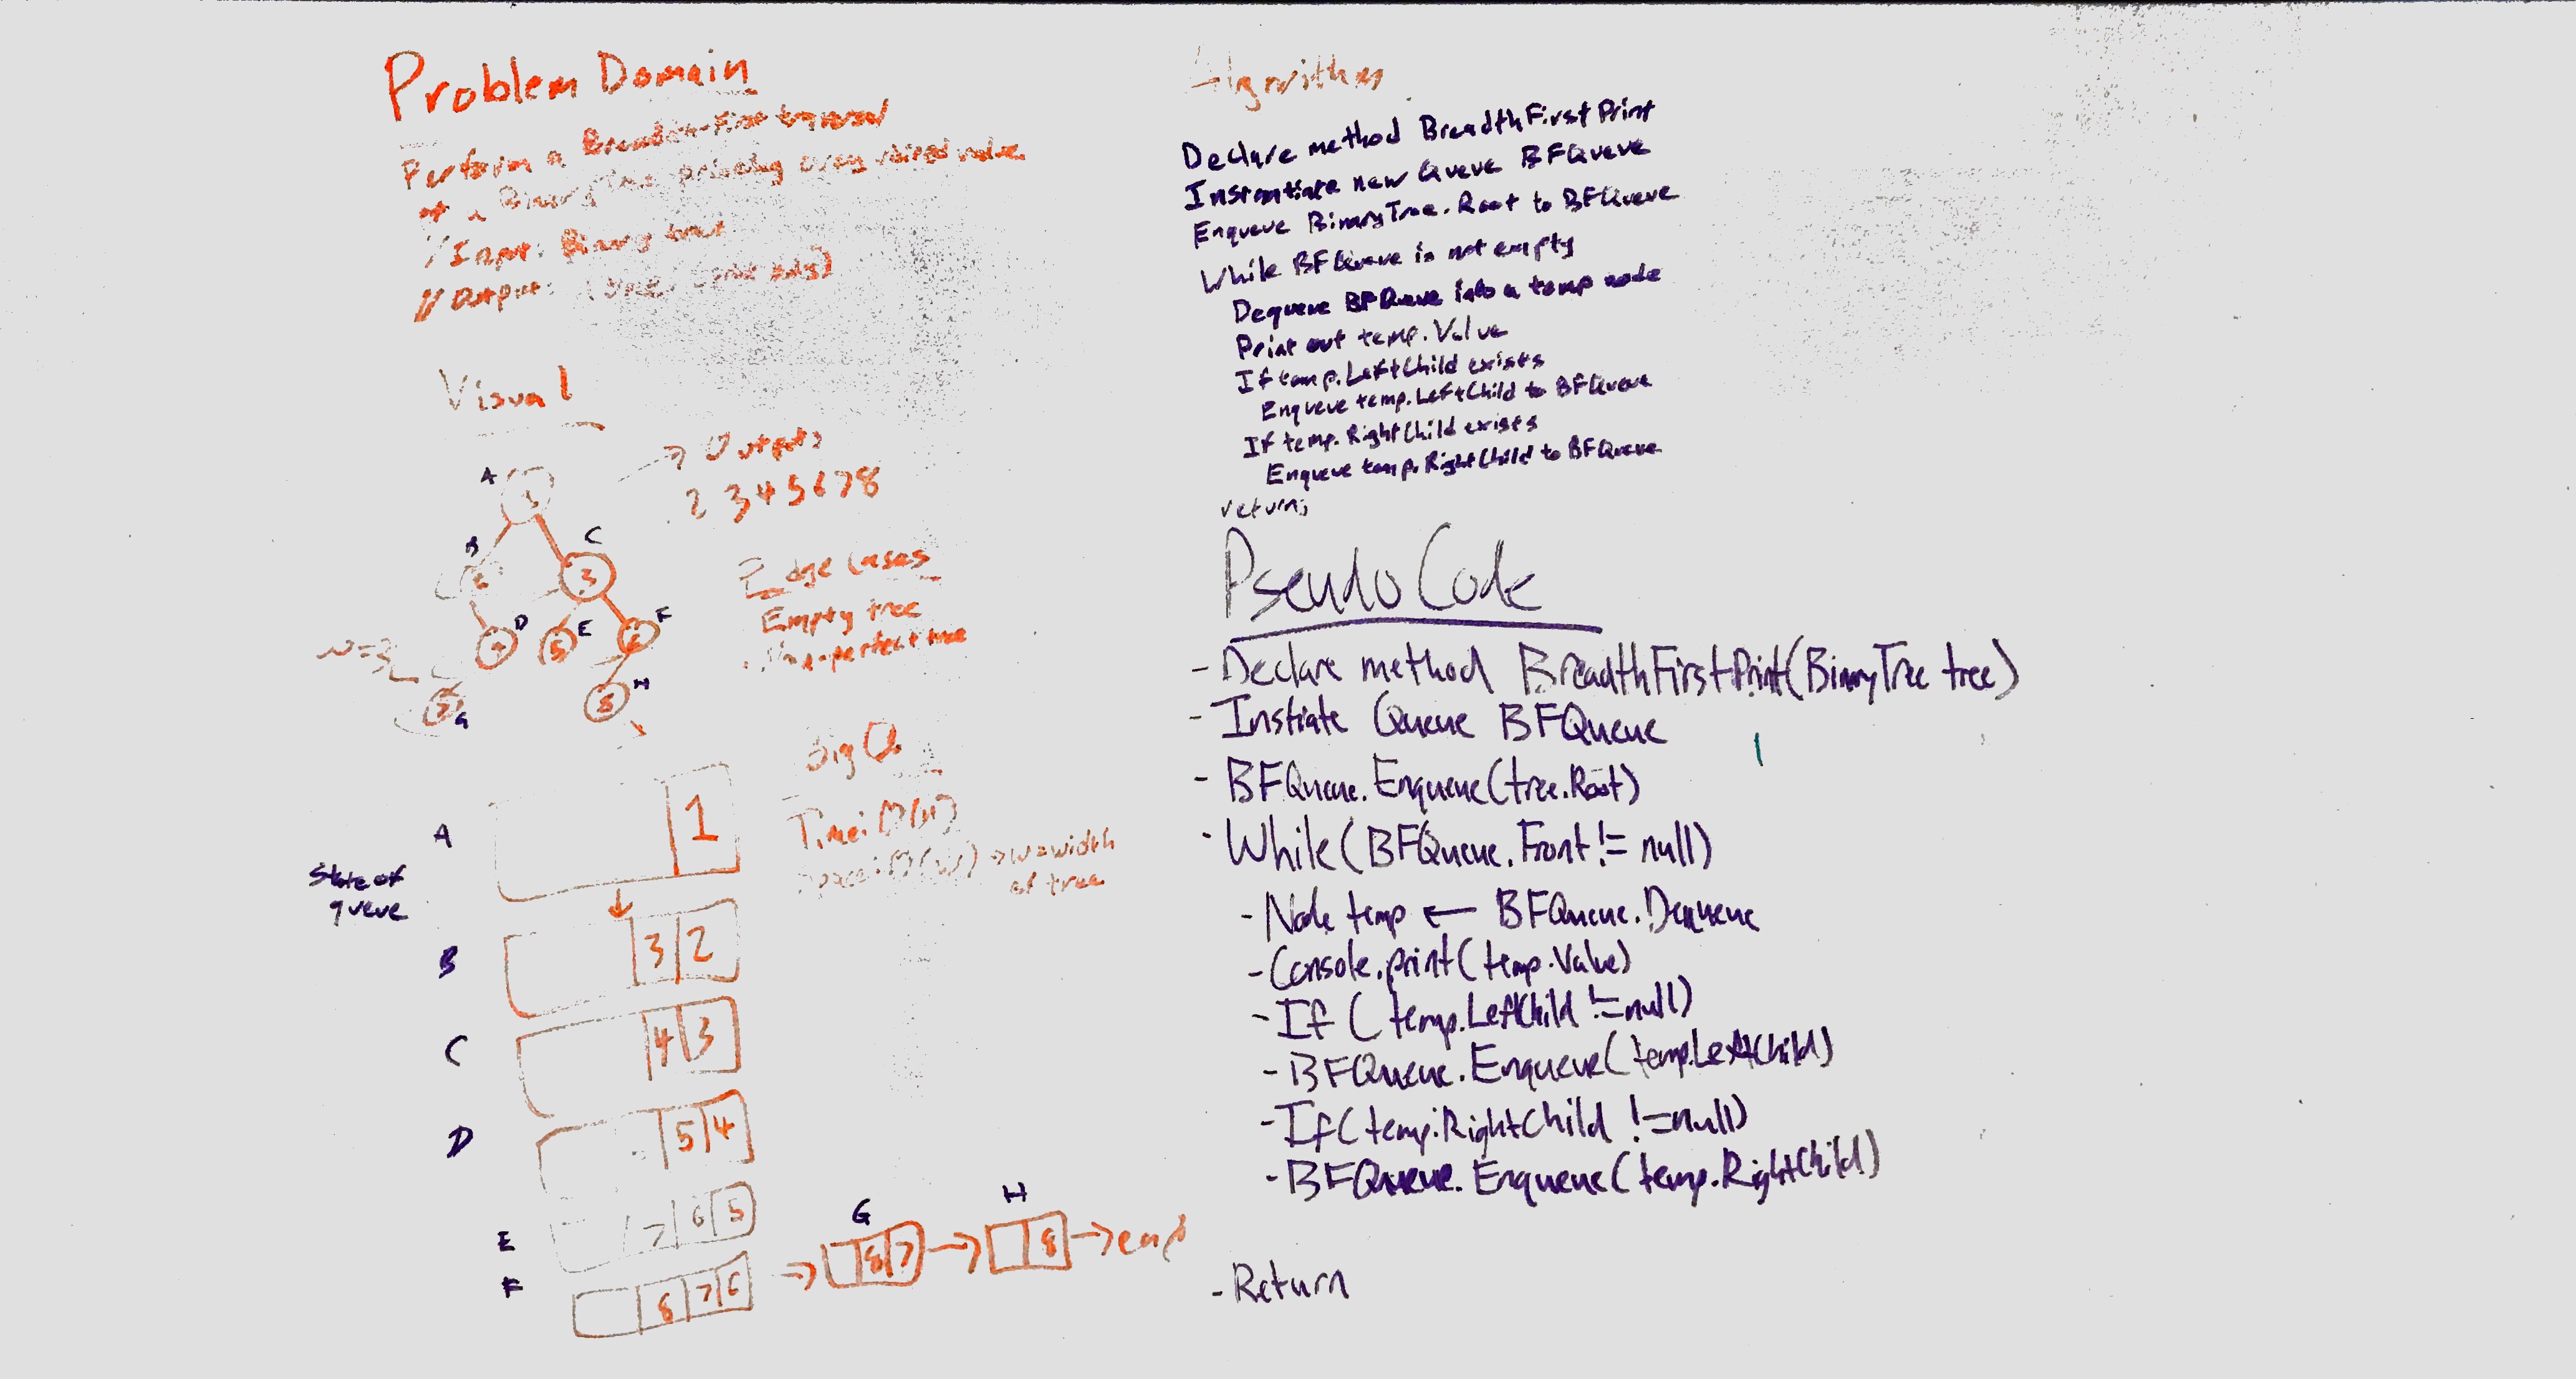 Problem Domain
Perform a Breadth-First traversal
of a Binary Tree printing every visited value
// Input: Binary tree
// Output: (print only)
Visual
Outputs
2 3 4 5 6 7 8
A
1
B
C
2
3
D
E
F
4
5
6
w=3
7
G
8
H
Edge Cases
Empty tree
Non-perfect tree
Big O
Time: O(n)
Space: O(w) → w=width
of tree
State of
queue
A
1
B
3 2
C
4 3
D
5 4
E
7 6 5
F
8 7 6
G
8 7
H
8
Algorithm
Declare method BreadthFirstPrint
Instantiate new Queue BFQueue
Enqueue BinaryTree.Root to BFQueue
While BFQueue is not empty
Dequeue BFQueue into a temp node
Print out temp.Value
If temp.LeftChild exists
Enqueue temp.LeftChild to BFQueue
If temp.RightChild exists
Enqueue temp.RightChild to BFQueue
return;
Pseudo Code
- Declare method BreadthFirstPrint(BinaryTree tree)
- Instiate Queue BFQueue
- BFQueue.Enqueue(tree.Root)
- While(BFQueue.Front != null)
- Node temp ← BFQueue.Dequeue
- Console.print(temp.Value)
- If (temp.LeftChild != null)
- BFQueue.Enqueue(temp.LeftChild)
- If(temp.RightChild != null)
- BFQueue.Enqueue(temp.RightChild)
- Return